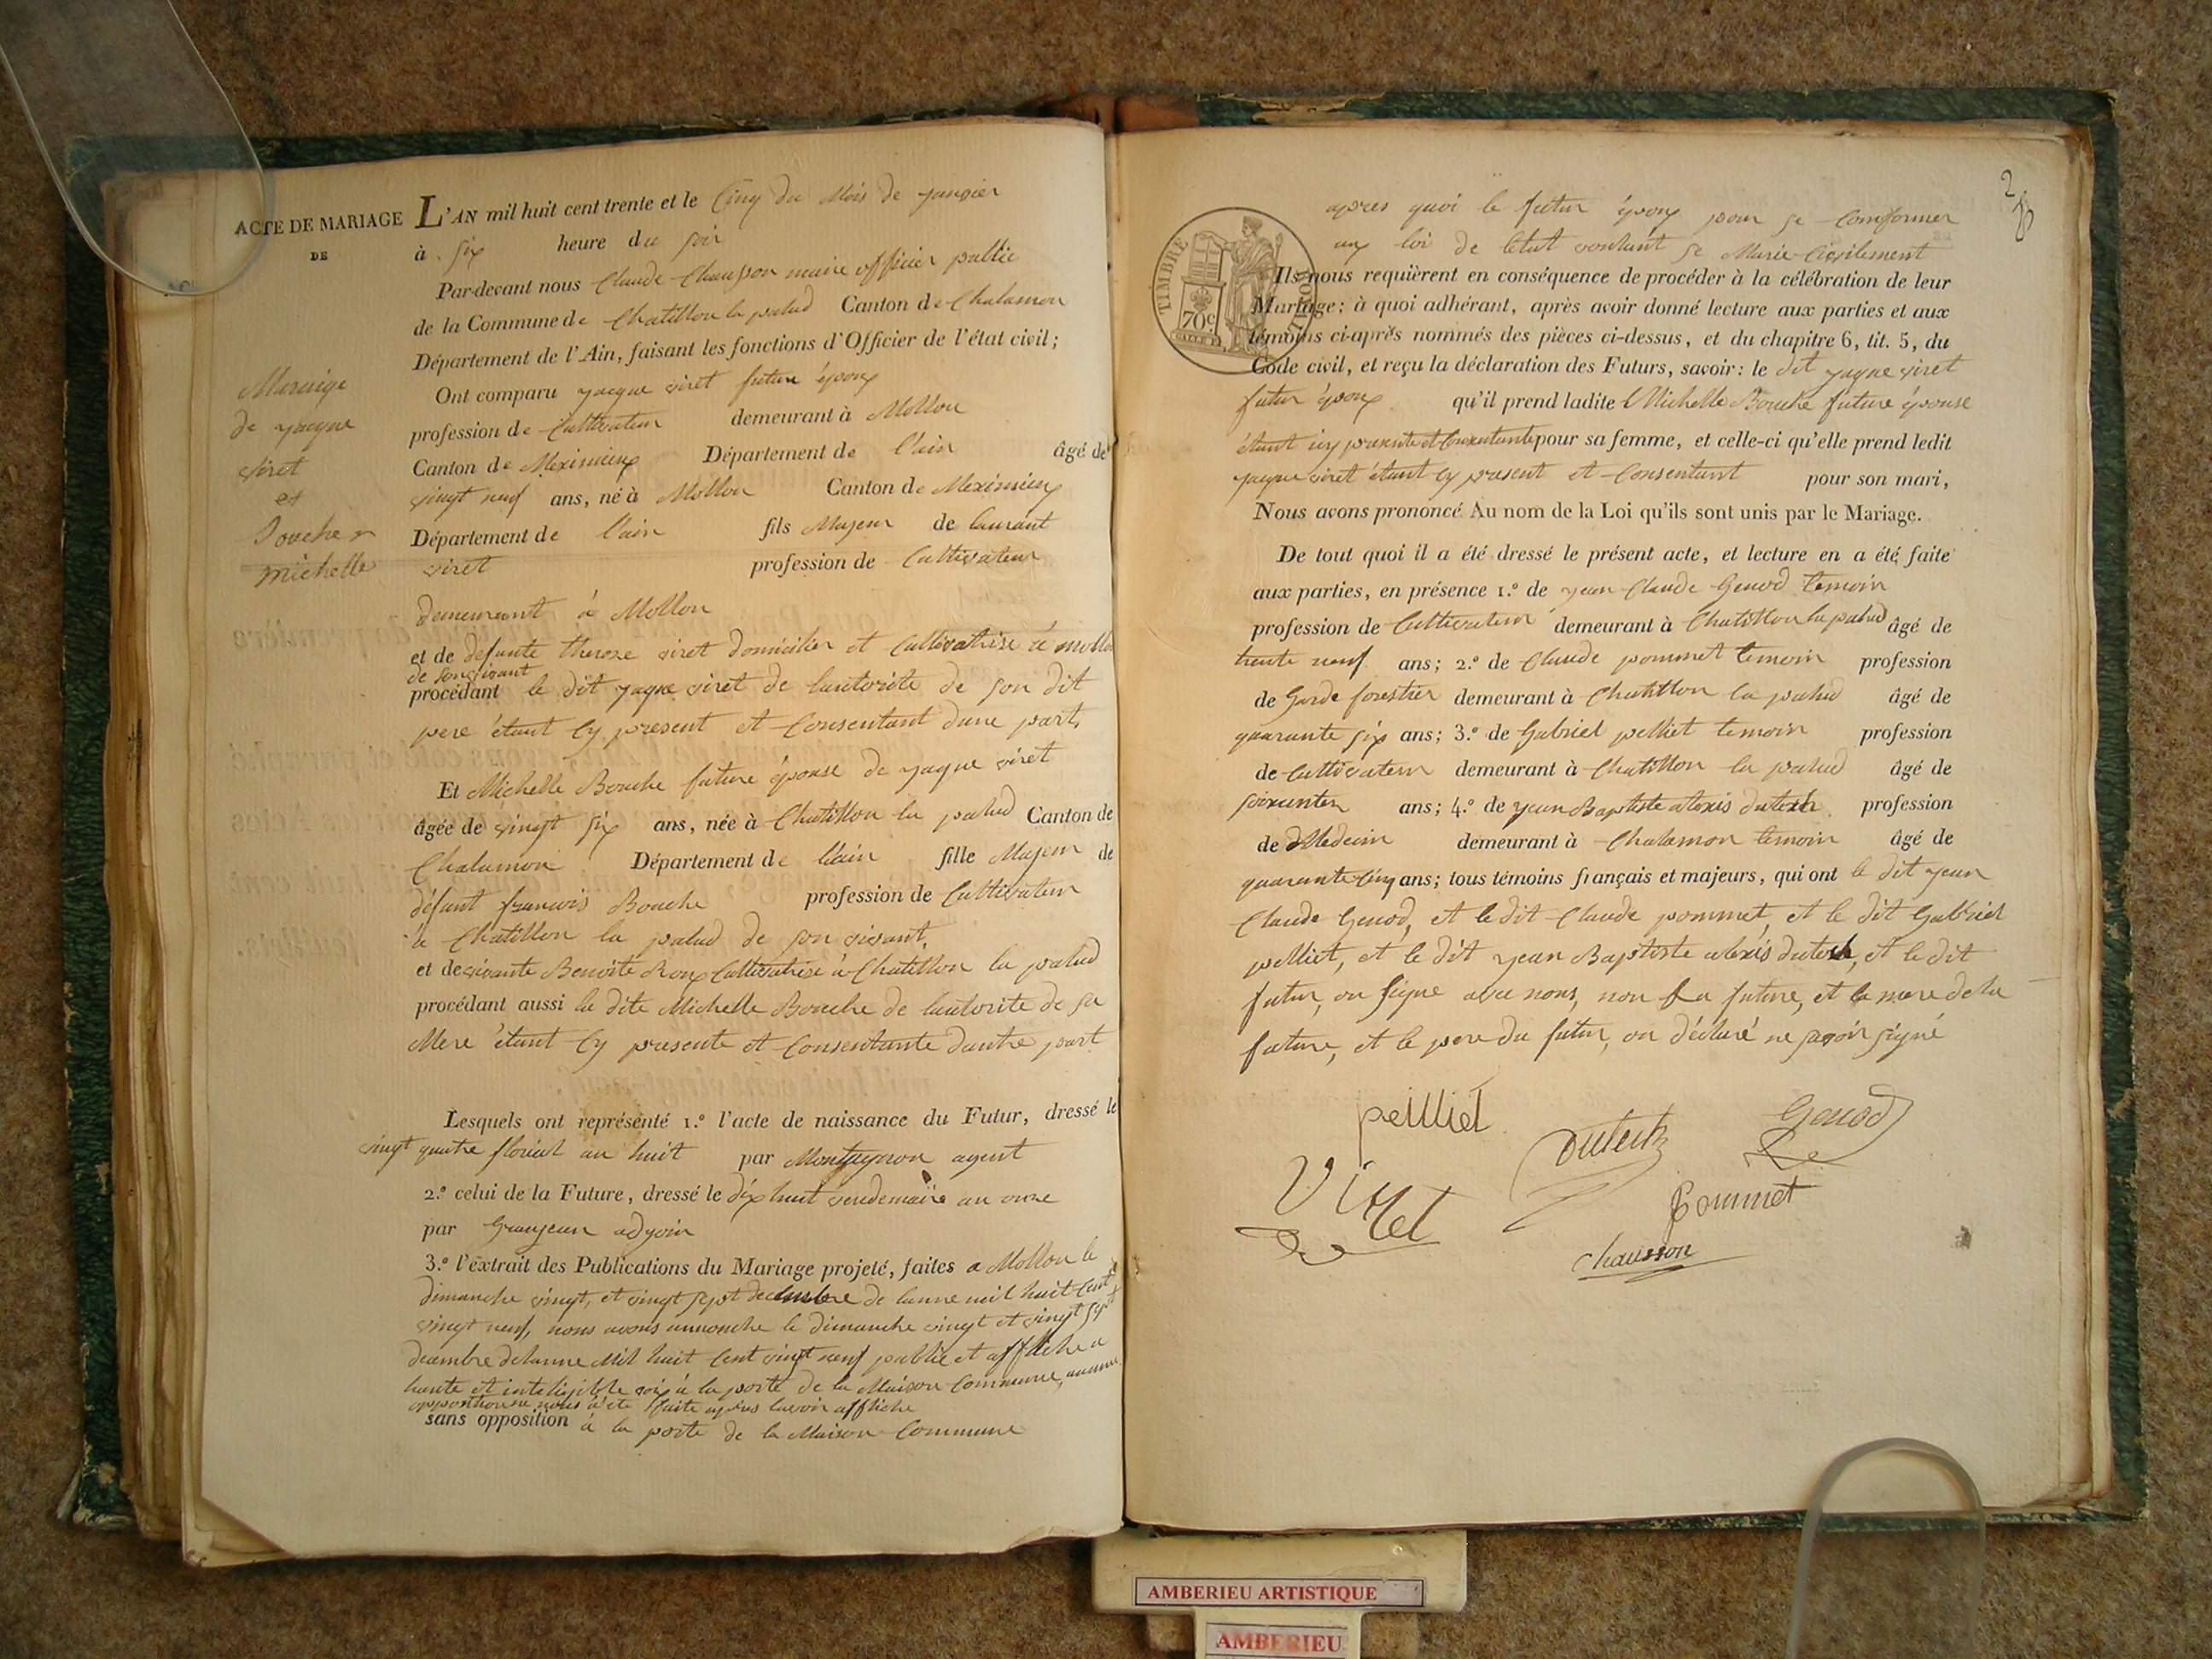 ACTE DE MARIAGE
DE
Mariage
de jacque
viret
et
Bouche
michelle
L'AN mil huit cent trente et le Cinq du Mois de janvier
à six heure du soir
Par-devant nous Claude Chausson maire officier public
de la Commune de Chatillon la palud Canton de Chalamon
Département de l'Ain, faisant les fonctions d'Officier de l'état civil;
Ont comparu jacque viret future époux
profession de Cultivateur demeurant à Mollon
Canton de Meximieux Département de l'ain âgé de
vingt neuf ans, né à Mollon Canton de Meximieux
Département de l'ain fils Majeur de laurant
viret profession de Cultivateur
demeurant à Mollon
et de defunte therese viret domicilier et Cultivatrise à mollon
de son vivant
procédant le dit jaque viret de lautorite de son dit
pere étant Cy present et Consentant dune part,
Et Michelle Bouche future épouse de jaque viret
âgée de vingt six ans, née à Chatillon la palud Canton de
Chalamon Département de l'ain fille Majeur de
défunt francois Bouche profession de Cultivateur
à Chatillon la palud de son vivant,
et de vivante Benoite Roux Cultivatrise à Chatillon la palud
procédant aussi la dite Michelle Bouche de lautorite de sa
Mere étant Cy presente et Consentante dautre part
Lesquels ont représenté 1.º l'acte de naissance du Futur, dressé le
vingt quatre florial an huit par agent
2.º celui de la Future, dressé le dix huit vendemaire an onze
par Granjean adjoin
3.º l'extrait des Publications du Mariage projeté, faites a Mollon le
dimanche vingt, et vingt sept decembre de lanne mil huit Cent
vingt neuf, nous avons annonche le dimanche vingt et vingt sept
decembre de lanne Mil huit Cent vingt neuf publié et affliche a
haute et inteligible voix à la porte de la Maison Commune, aucune
oppostion ne nous a été faite après lavoir affliche
sans opposition à la porte de la Maison Commune
2
TIMBRE
70c
apres quoi le futur époux pour se Comformer
aux loi de létat voulant se Marie Civilement
Ils nous requièrent en conséquence de procéder à la célébration de leur
Mariage; à quoi adhérant, après avoir donné lecture aux parties et aux
témoins ci-après nommés des pièces ci-dessus, et du chapitre 6, tit. 5, du
Code civil, et reçu la déclaration des Futurs, savoir: le dit jaque viret
futur époux qu'il prend ladite Michelle Bouche future épouse
étant icy presente et Consentante pour sa femme, et celle-ci qu'elle prend ledit
jaque viret étant Cy present et Consentant pour son mari,
Nous avons prononcé Au nom de la Loi qu'ils sont unis par le Mariage.
De tout quoi il a été dressé le présent acte, et lecture en a été faite
aux parties, en présence 1.º de jean Claude Genod temoin
profession de Cultivateur demeurant à Chatillon la palud âgé de
trente neuf ans; 2.º de Claude pommet temoin profession
de Garde forestier demeurant à Chatillon la palud âgé de
quarante six ans; 3.º de Gabriel pelliet temoin profession
de Cultivateur demeurant à Chatillon la palud âgé de
soixante ans; 4.º de jean Baptiste alexis profession
de Medecin demeurant à Chalamon temoin âgé de
quarante Cinq ans; tous témoins français et majeurs, qui ont le dit jean
Claude Genod, et le dit Claude pommet, et le dit Gabriel
pelliet, et le dit jean Baptiste alexis, et le dit
futur, on signe avec nous, non la future, et la mere de la
future, et le pere du futur, on déclaré ne savoir signé
peilliet
Genod
Viret
Pommet
Chausson
AMBERIEU ARTISTIQUE
AMBERIEU